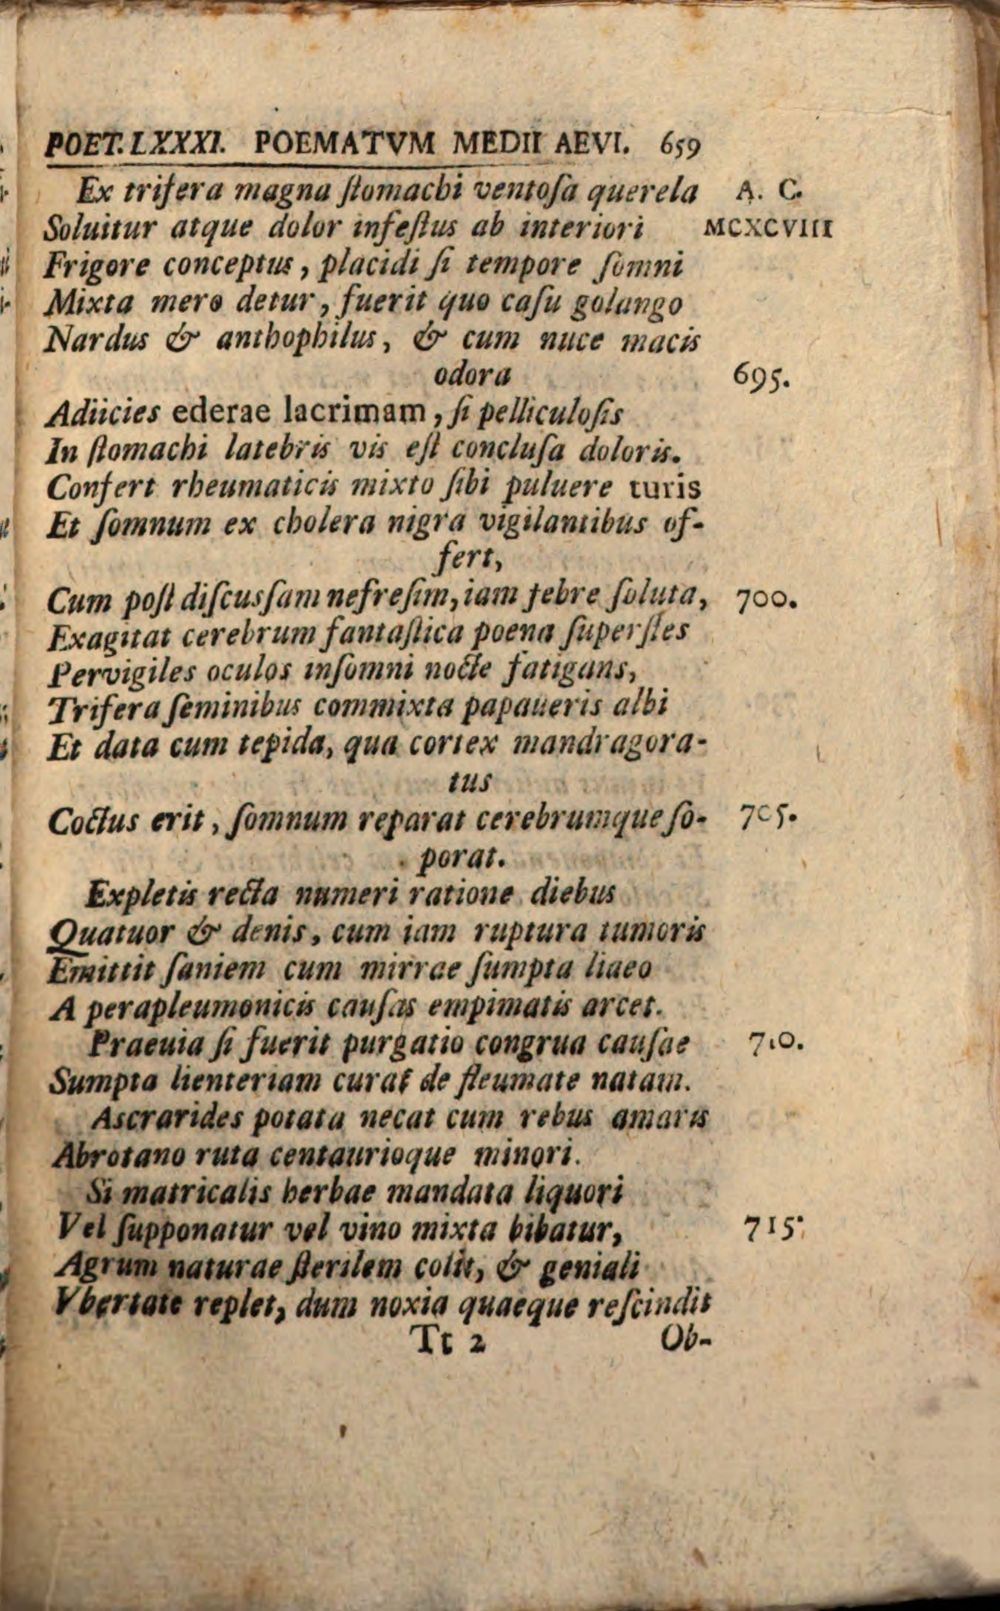 POET. LXXXI. POEMATVM MEDII AEVI. 659
Ex trifera magna ſtomachi ventoſa querela A. C.
Soluitur atque dolor infeſtus ab interiori MCXCVIII
Frigore conceptus, placidi ſi tempore ſomni
Mixta mero detur, fuerit quo caſu golango
Nardus & anthophilus, & cum nuce macis
odora 695.
Adiicies ederae lacrimam, ſi pelliculoſis
In ſtomachi latebris vis eſt concluſa doloris.
Confert rheumaticis mixto ſibi puluere turis
Et ſomnum ex cholera nigra vigilantibus of-
fert,
Cum poſt diſcusſam nefreſim, iam febre ſoluta, 700.
Exagitat cerebrum fantaſtica poena ſuperſtes
Pervigiles oculos inſomni nocte fatigans,
Trifera ſeminibus commixta papaueris albi
Et data cum tepida, qua cortex mandragora-
tus
Coctus erit, ſomnum reparat cerebrumque ſo- 705.
porat.
Expletis recta numeri ratione diebus
Quatuor & denis, cum iam ruptura tumoris
Emittit ſaniem cum mirrae ſumpta liaeo
A perapleumonicis cauſas empimatis arcet.
Praeuia ſi fuerit purgatio congrua cauſae 710.
Sumpta lienteriam curat de fleumate natam.
Ascrarides potata necat cum rebus amaris
Abrotano ruta centaurioque minori.
Si matricalis herbae mandata liquori
Vel ſupponatur vel vino mixta bibatur, 715.
Agrum naturae ſterilem colit, & geniali
Vbertate replet, dum noxia quaeque reſcindit
Tt 2 Ob-